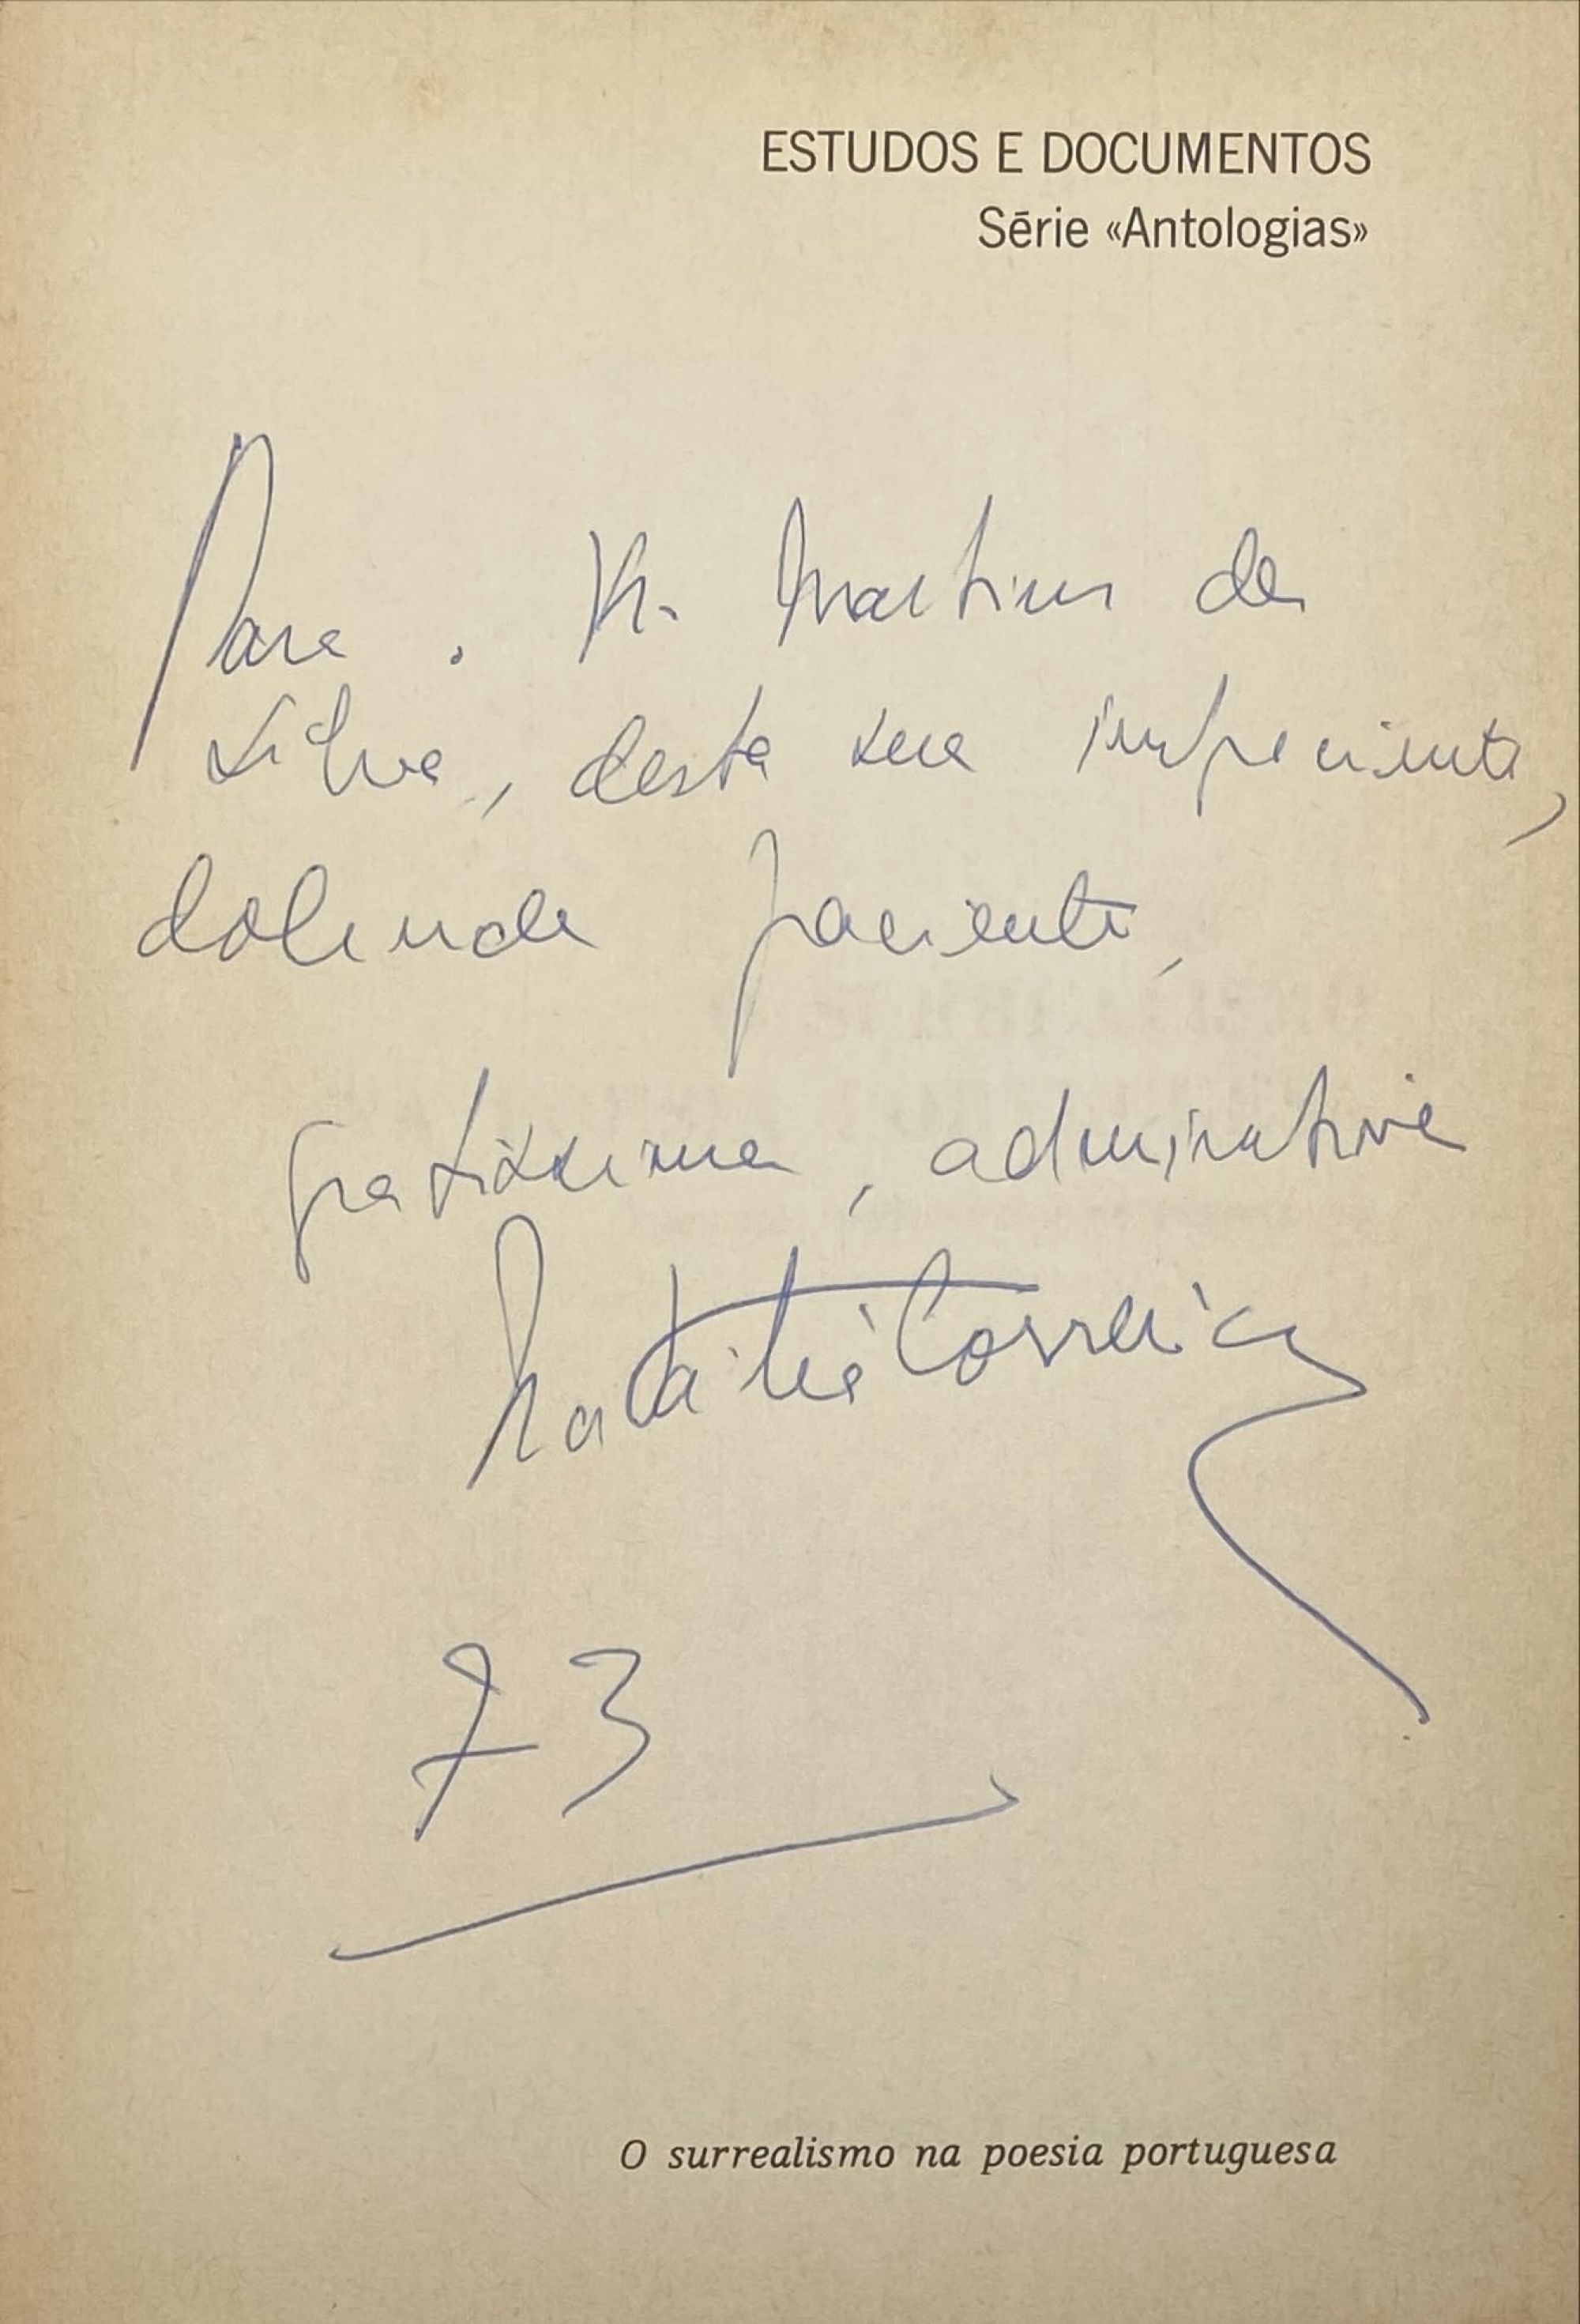 ESTUDOS E DOCUMENTOS
Série «Antologias»
Para Martins da
Silva, desta sua impaciente,
dolente paciente,
gratíssima, admirativa
Natália Correia
73
O surrealismo na poesia portuguesa